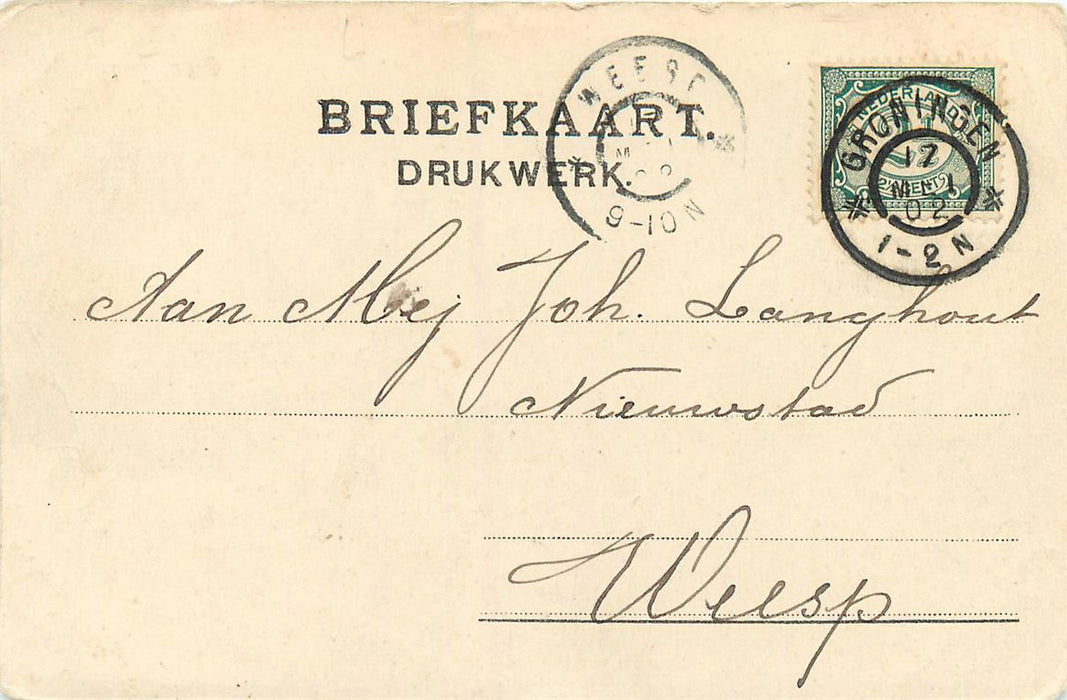 BRIEFKAART.
DRUKWERK.
WEESP
9-10N
NEDERLAND
GRONINGEN
17
MEI
02
1-2N
Aan Mej Joh. Langhout
Nieuwstad
Weesp